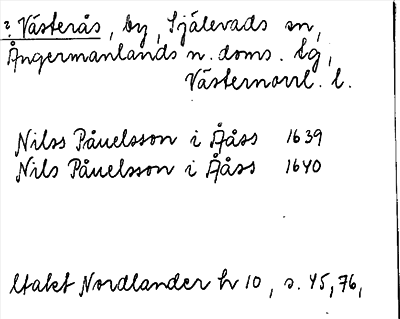 ? Västerås, by, Själevads sn,
Ångermanlands n. doms. lg,
Västernorrl. l.
Nilss Påuelsson i Ååss 1639
Nils Påuelsson i Ååss 1640
Utakt Nordlander h 10, s. 45, 76,